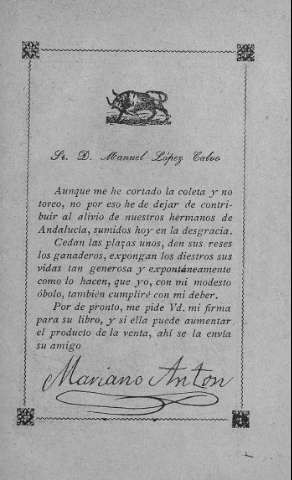 Sr. D. Manuel López Calvo
Aunque me he cortado la coleta y no
toreo, no por eso he de dejar de contri-
buir al alivio de nuestros hermanos de
Andalucía, sumidos hoy en la desgracia.
Cedan las plazas unos, den sus reses
los ganaderos, expongan los diestros sus
vidas tan generosa y expontáneamente
como lo hacen, que yo, con mi modesto
óbolo, también cumpliré con mi deber.
Por de pronto, me pide Vd. mi firma
para su libro, y si élla puede aumentar
el producto de la venta, ahí se la envía
su amigo
Mariano Anton